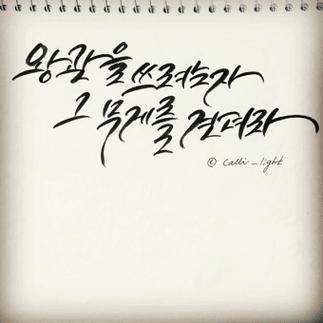 왕관을 쓰려는자
그 무게를 견뎌라
© calli_light